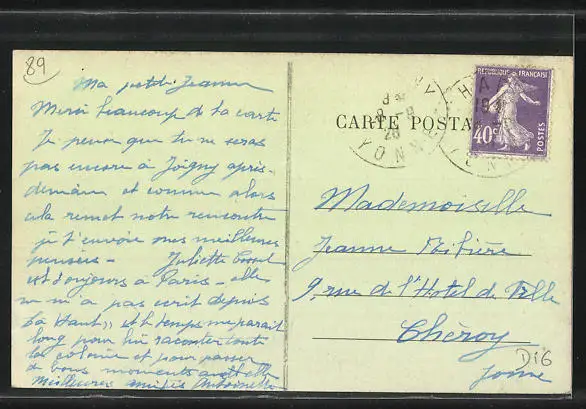 89
Ma petite Jeanne
Merci beaucoup de la carte
Je pense que tu ne seras
pas encore à Joigny après-
demain et comme alors
cela remet notre rencontre
je t'envoie mes meilleures
pensées - Juliette
est toujours à Paris - elle
ne m'a pas écrit depuis
"La Haut" et le temps me parait
long pour lui raconter toute
la colonie et pour passer
de bons moments
meilleures amitiés Antoinette
CARTE POSTA
REPUBLIQUE FRANÇAISE
40c
POSTES
YONN
Mademoiselle
Jeanne
9 rue de l'Hotel de Ville
Chéroy
Yonne
D16